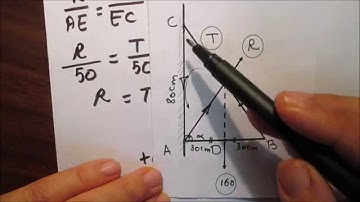 AE = EC
R/50 = T/50
R = T
C
T
R
80cm
α
A 30cm D 30cm B
160